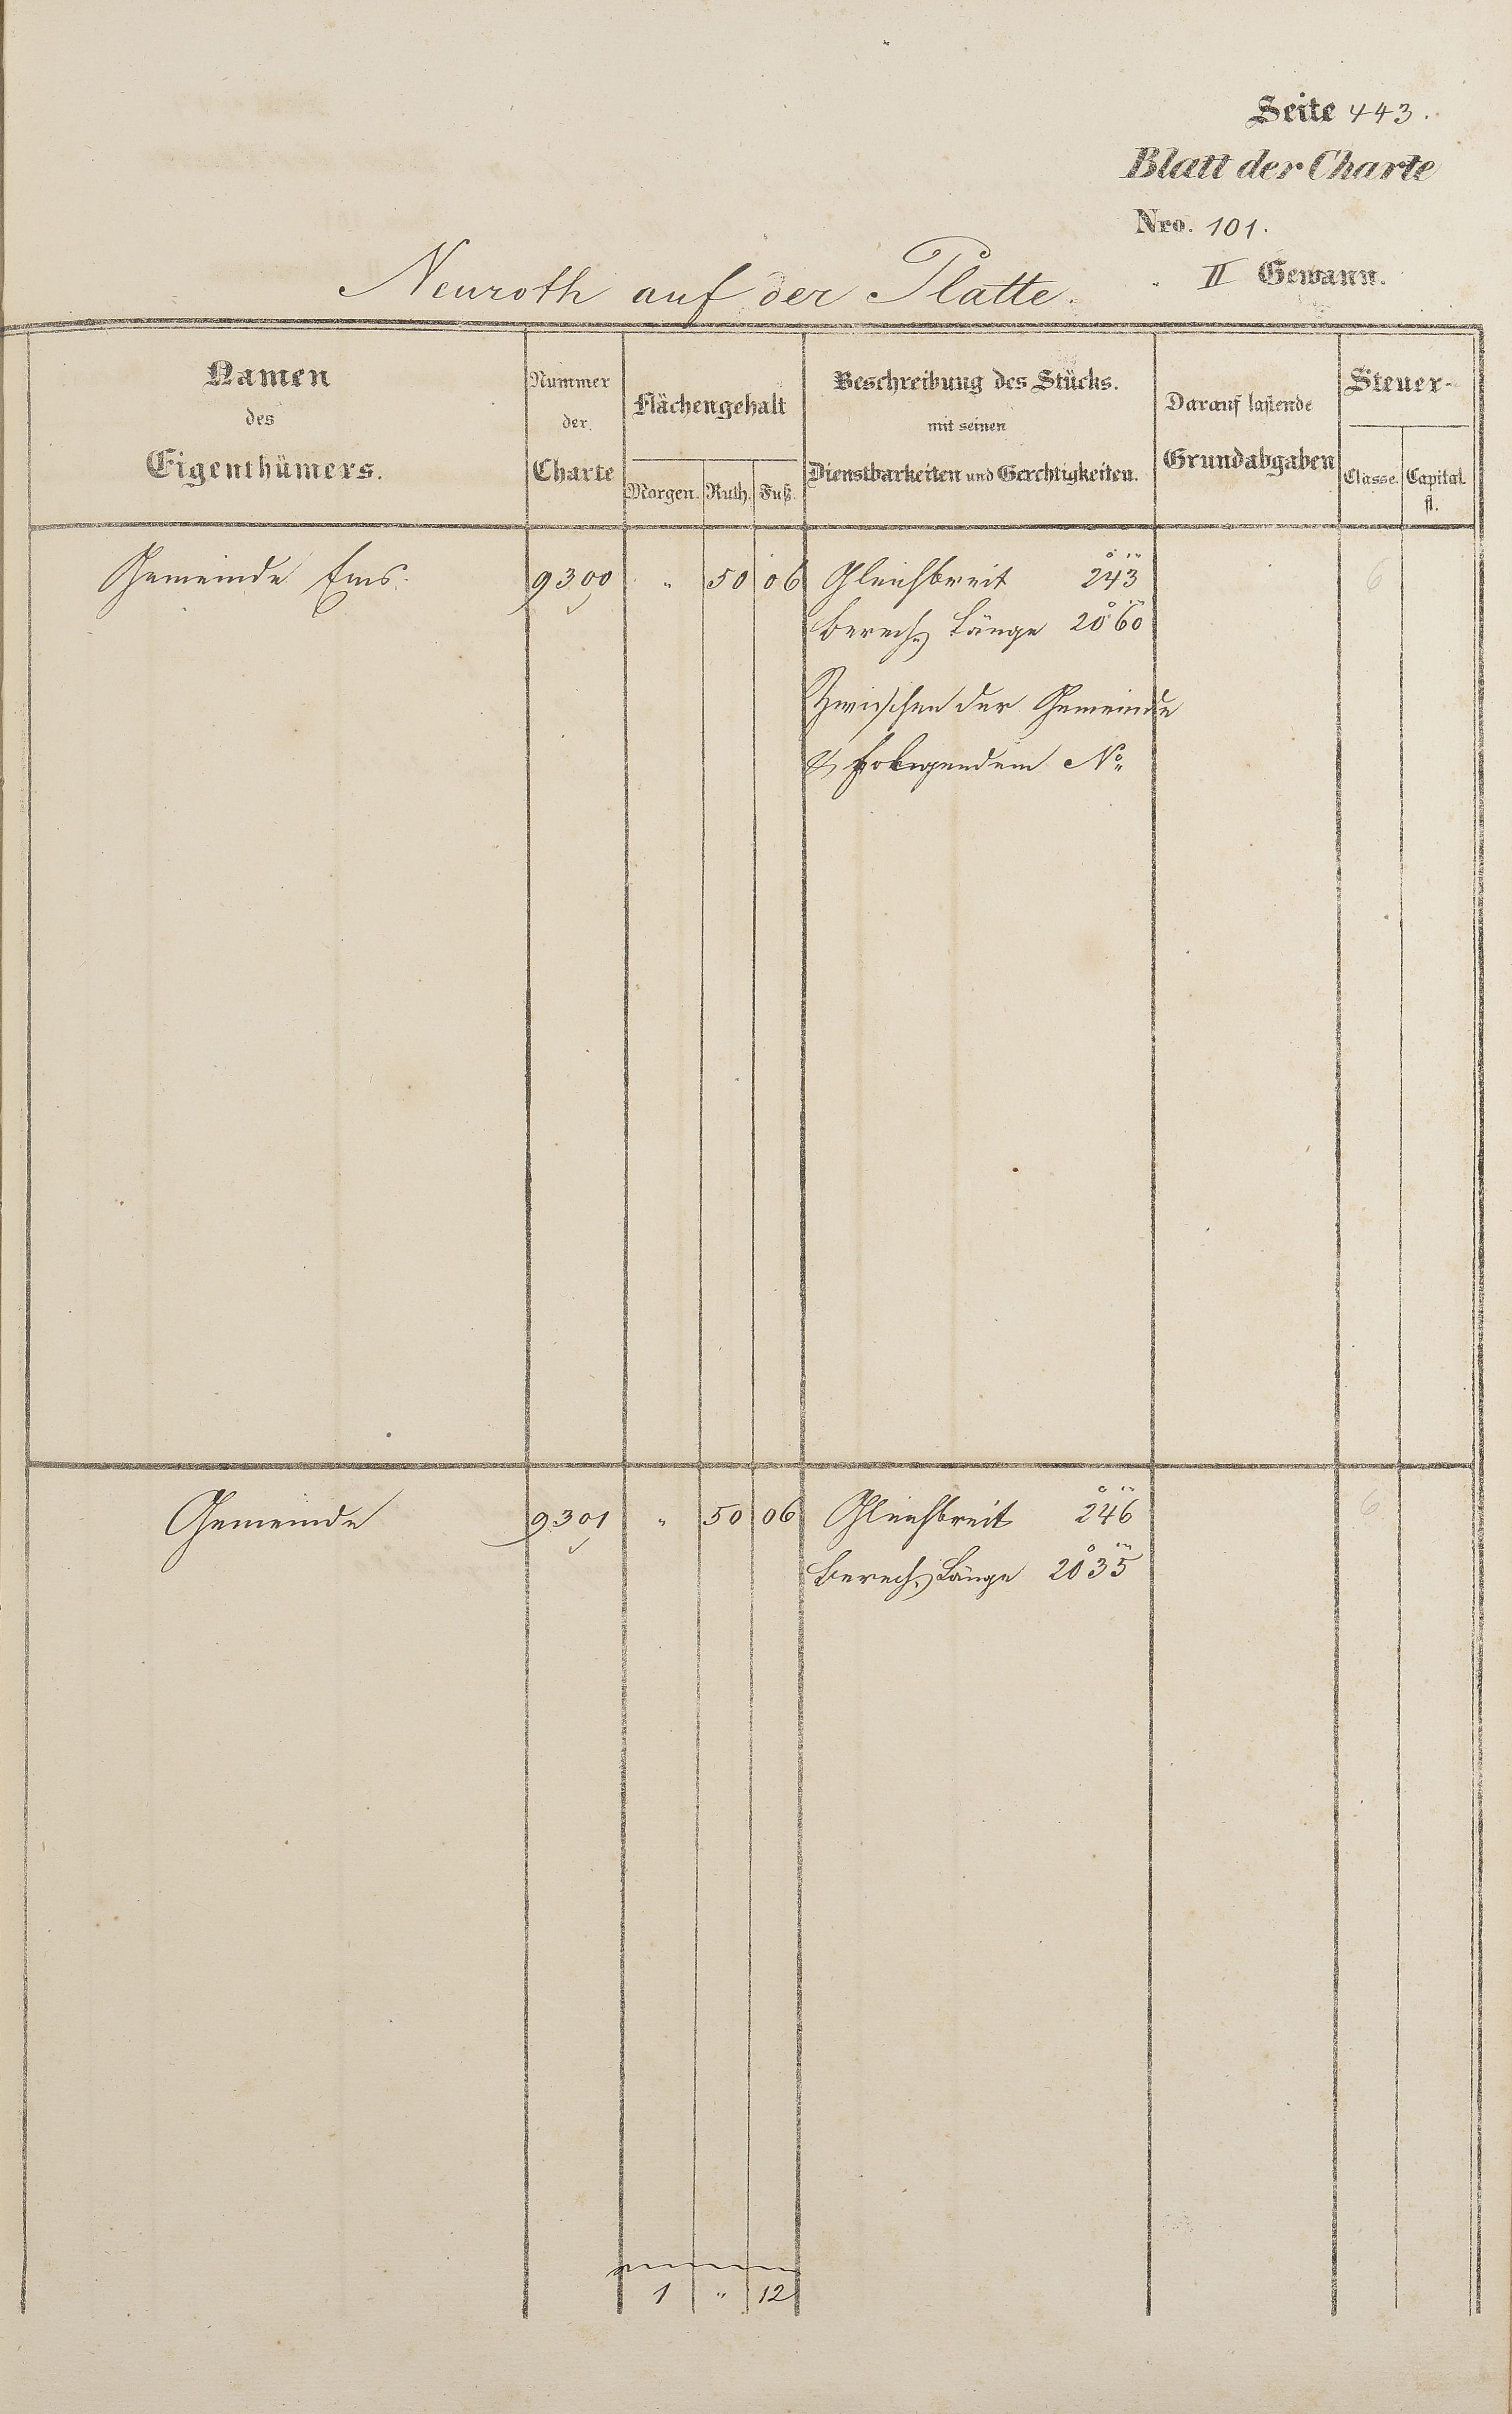 Seite 443.
Blatt der Charte
Nro. 101.
II Gewann.
Neuroth auf der Platte.
Namen
des
Eigenthümers.
Nummer
der
Charte
Flächengehalt
Morgen. Ruth. Fuß.
Beschreibung des Stücks.
mit seinen
Dienstbarkeiten und Gerechtigkeiten.
Darauf lastende
Grundabgaben
Steuer-
Classe. Capital.
fl.
Gemeinde Ems. 9300 " 50 06 Gleichbreit 243 6
berech. Länge 2060
Zwischen der Gemeinde
& folgendem No.
Gemeinde 9301 " 50 06 Gleichbreit 246 6
berech. Länge 2035
1 " 12